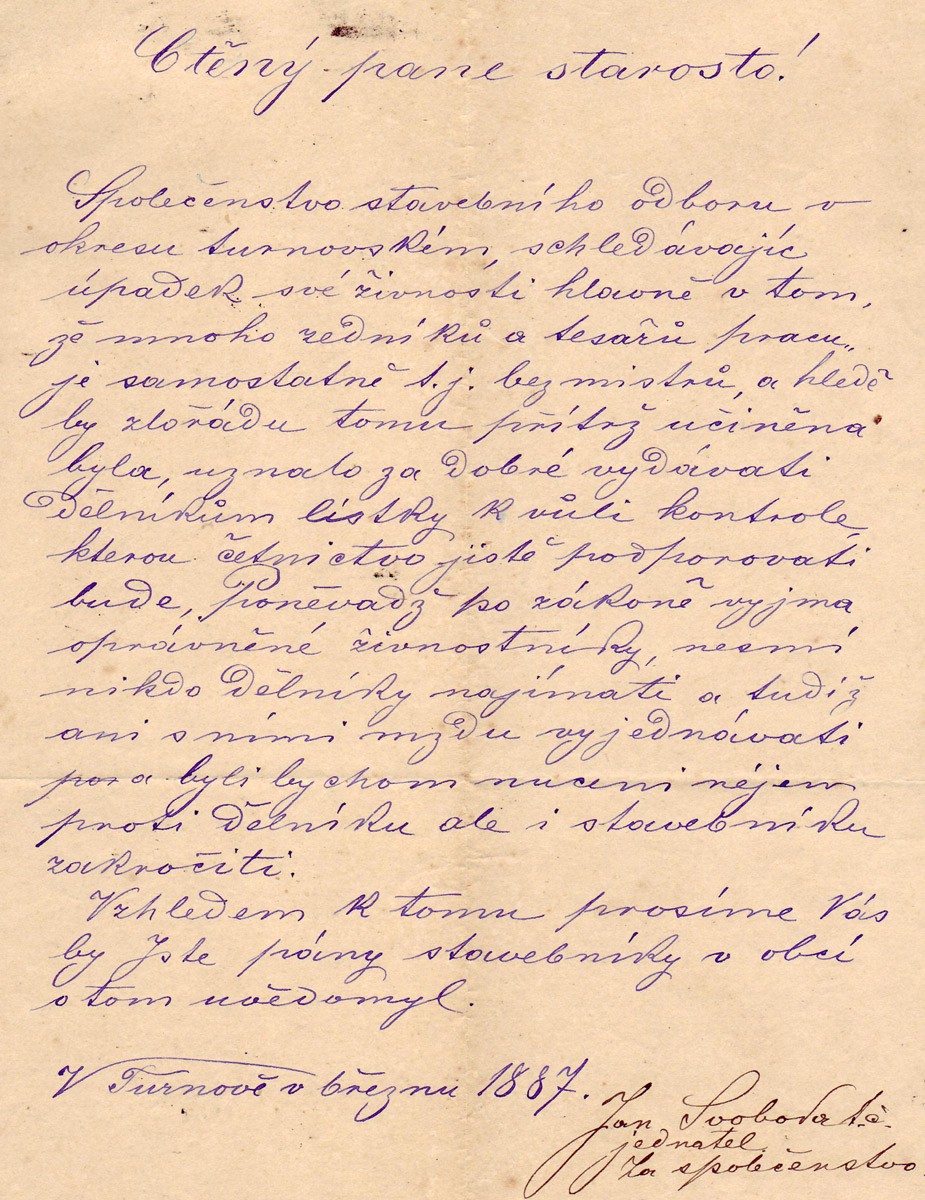 Ctěný pane starosto!
Společenstvo stavebního odboru v
okresu turnovském, schledávajíc
úpadek své živnosti hlavně v tom,
že mnoho zedníků a tesařů pracu„
je samostatně t.j. bez mistrů, a hledě
by zlořádu tomu přítrž učiněna
byla, uznalo za dobré vydávati
dělníkům lístky k vůli kontrole,
kterou četnictvo jistě podporovati
bude, Poněvadž po zákoně vyjma
oprávněné živnostníky, nesmí
nikdo dělníky najímati a tudíž
ani s nimi mzdu vyjednávati
byli bychom nuceni nejen
proti dělníku ale i stavebníku
zakročiti.
Vzhledem k tomu prosíme Vás
by Jste pány stavebníky v obci
o tom uvědomyl.
V Turnově v březnu 1887.
Jan Svoboda t.č.
jednatel.
Za společenstvo